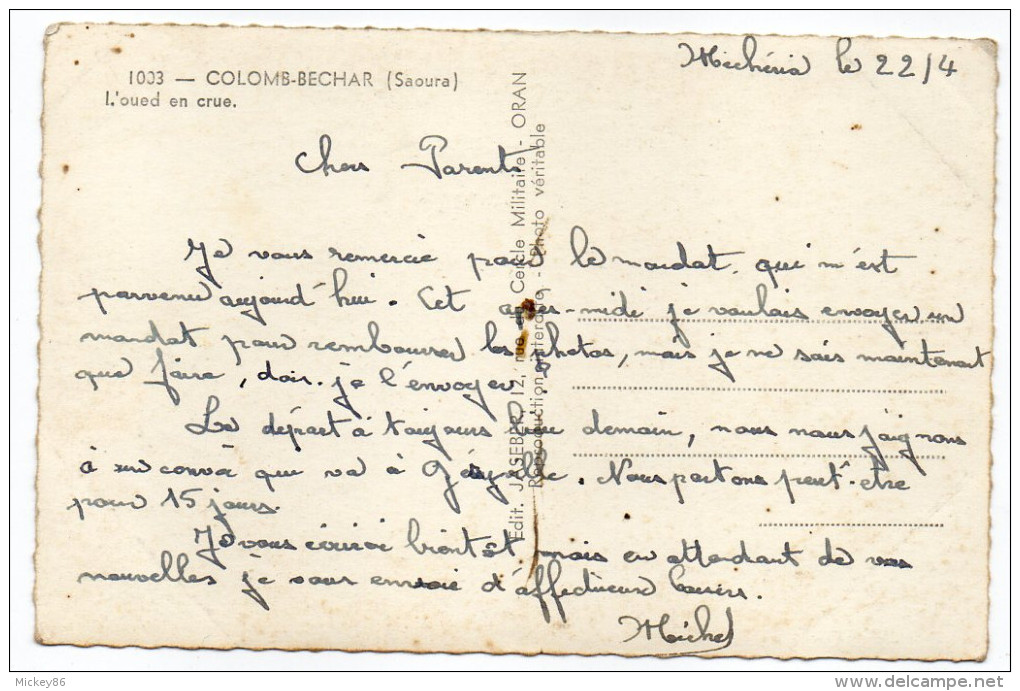 1003 — COLOMB-BECHAR (Saoura)
L'oued en crue.
Méchéria le 22/4
Chers Parents
Je vous remercie pour le mandat qui m'est
parvenu aujourd'hui. Cet après-midi je voulais envoyer un
mandat pour rembourser les photos, mais je ne sais maintenant
que faire, dois-je l'envoyer ?
Le départ a toujours lieu demain, nous nous joignons
à un convoi qui va à Géryville. Nous partons peut-être
pour 15 jours.
Je vous écrirai bientôt mais en attendant de vos
nouvelles je vous envoie d'affectueux baisers.
Michel
Edit. JASEBER, 12, rue du Cercle Militaire - ORAN
Reproduction interdite - Photo véritable
Mickey86
delcampe.net